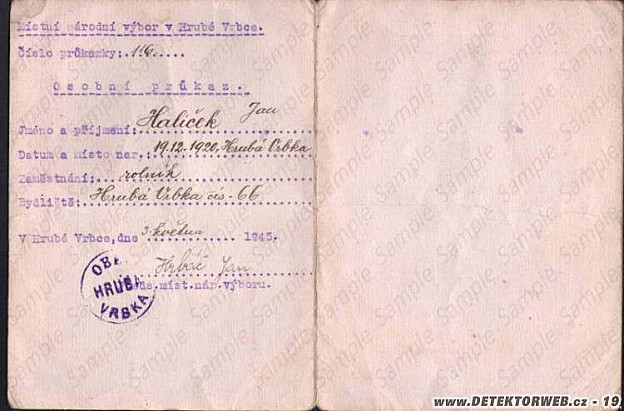 Místní národní výbor v Hrubé Vrbce.
Číslo průkazky: 116.....
Osobní průkaz.
Jméno a příjmení: Haliček Jan
Datum a místo nar. 19.12.1920, Hrubá Vrbka
Zaměstnání: rolník
Bydliště: Hrubá Vrbka čís-66
V Hrubé Vrbce, dne 3. května 1945.
Hrbáč Jan
mist. nár. výboru.
OBE
HRUBÁ
VRBKA
Sample
www.DETEKTORWEB.cz - 19